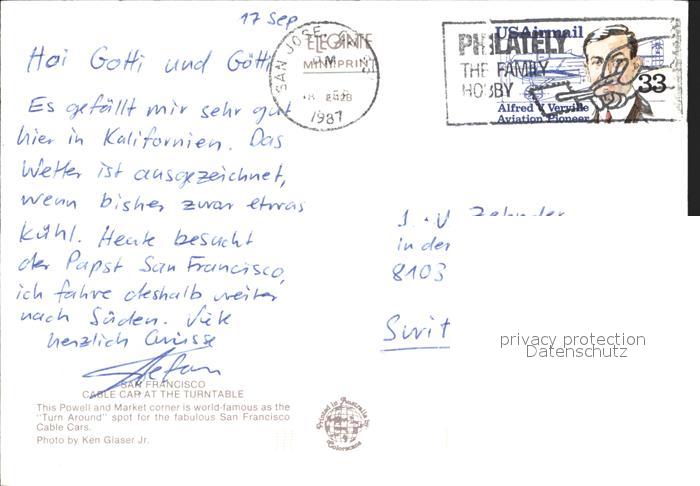 17 Sep
Hoi Gotti und Götti
Es gefällt mir sehr gut
hier in Kalifornien. Das
Wetter ist ausgezeichnet,
wenn bisher zwar etwas
kühl. Heute besucht
der Papst San Francisco,
ich fahre deshalb weiter
nach Süden. Viele
herzlich Grüsse
Stefan
SAN FRANCISCO
CABLE CAR AT THE TURNTABLE
This Powell and Market corner is world-famous as the
"Turn Around" spot for the fabulous San Francisco
Cable Cars.
Photo by Ken Glaser Jr.
SAN JOSE, CA
PM
1987
MINIPRINT
Printed in Australia by
Colorscans
PHILATELY
THE FAMILY
HOBBY
USAirmail
33
Alfred V. Verville
Aviation Pioneer
Zehnder
in der
8103
Swit
privacy protection
Datenschutz